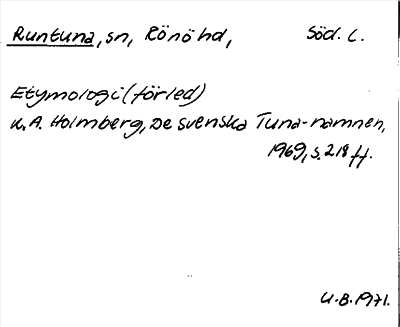 Runtuna, sn, Rönö hd, Söd. l.
Etymologi (förled)
K.A. Holmberg, De svenska Tuna-namnen,
1969, s. 218 ff.
U.B. 1971.